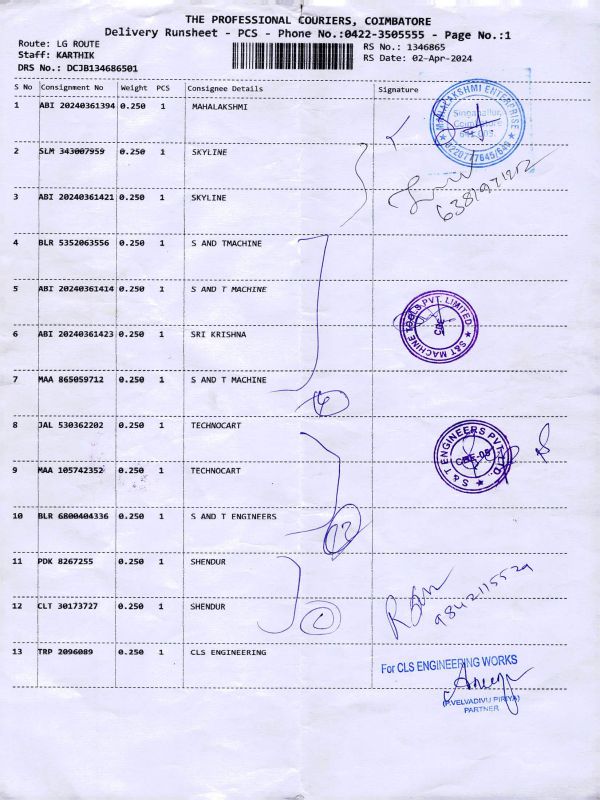 THE PROFESSIONAL COURIERS, COIMBATORE
Delivery Runsheet - PCS - Phone No.:0422-3505555 - Page No.:1
Route: LG ROUTE
RS No.: 1346865
Staff: KARTHIK
RS Date: 02-Apr-2024
DRS No.: DCJB134686501
S No Consignment No Weight PCS Consignee Details Signature
1 ABI 20240361394 0.250 1 MAHALAKSHMI
MAHALAKSHMI ENTERPRISE
Singanallur,
Coimbatore
641 005.
2 SLM 343007959 0.250 1 SKYLINE
3 ABI 20240361421 0.250 1 SKYLINE
4 BLR 5352063556 0.250 1 S AND TMACHINE
5 ABI 20240361414 0.250 1 S AND T MACHINE
S&T MACHINE TOOLS PVT. LIMITED
CBE
6 ABI 20240361423 0.250 1 SRI KRISHNA
7 MAA 865059712 0.250 1 S AND T MACHINE
4
8 JAL 530362202 0.250 1 TECHNOCART
S & T ENGINEERS PVT. LTD.
CBE-05
9 MAA 105742352 0.250 1 TECHNOCART
10 BLR 6800404336 0.250 1 S AND T ENGINEERS
11 PDK 8267255 0.250 1 SHENDUR
12 CLT 30173727 0.250 1 SHENDUR
9842115529
13 TRP 2096089 0.250 1 CLS ENGINEERING
For CLS ENGINEERING WORKS
(P.VELVADIVU PIRIYA)
PARTNER